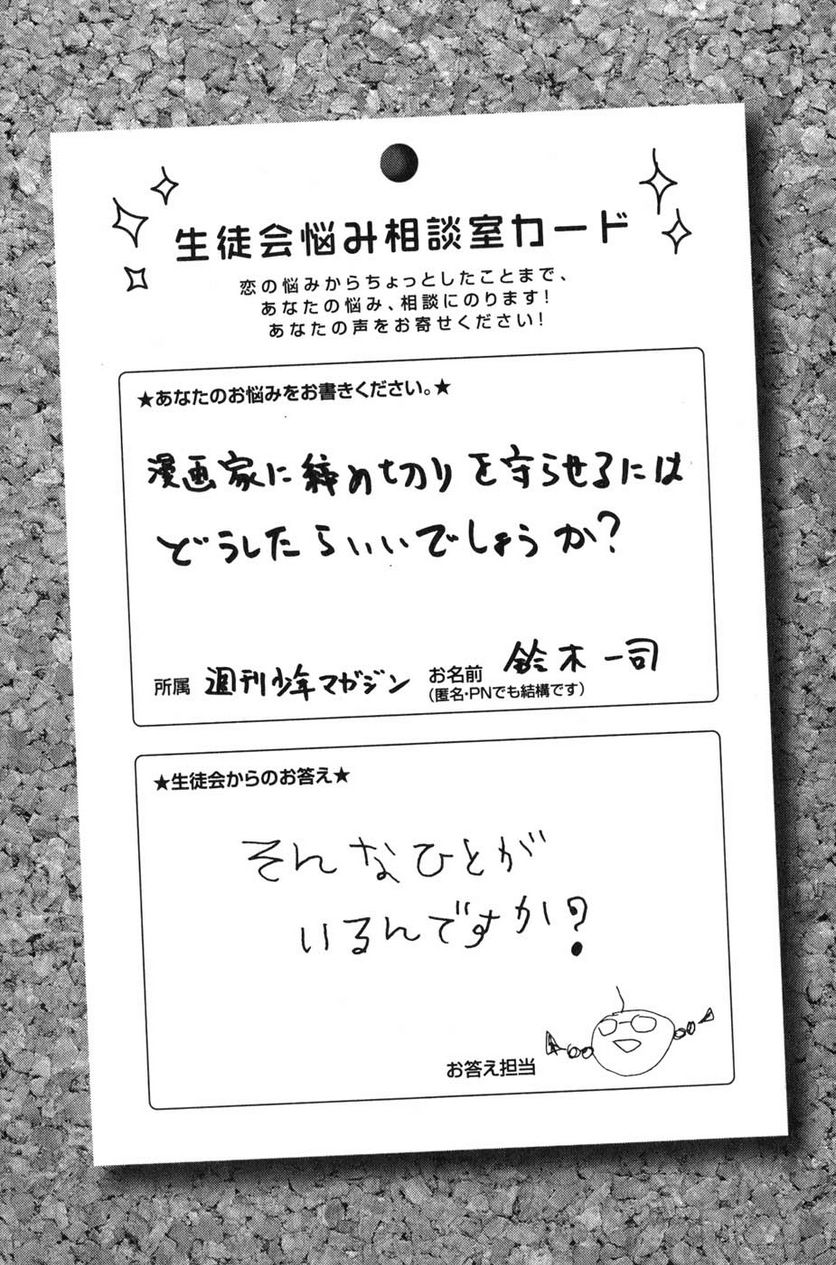 生徒会悩み相談室カード
恋の悩みからちょっとしたことまで、
あなたの悩み、相談にのります!
あなたの声をお寄せください!
★あなたのお悩みをお書きください。★
漫画家に締め切りを守らせるには
どうしたらいいでしょうか?
所属 週刊少年マガジン お名前 鈴木一司
(匿名・PNでも結構です)
★生徒会からのお答え★
そんなひとが
いるんですか?
お答え担当